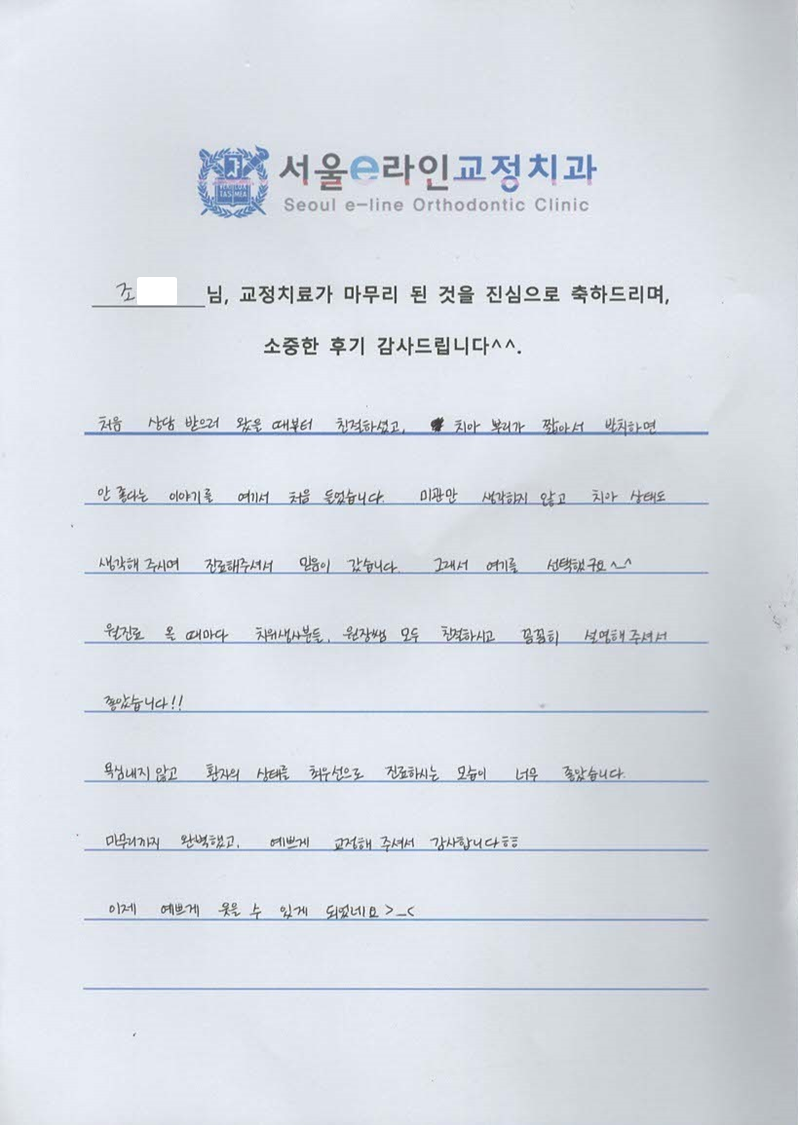 서울e라인교정치과
Seoul e-line Orthodontic Clinic
조 님, 교정치료가 마무리 된 것을 진심으로 축하드리며,
소중한 후기 감사드립니다^^.
처음 상담 받으러 왔을 때부터 친절하셨고, 치아 뿌리가 짧아서 발치하면
안 좋다는 이야기를 여기서 처음 들었습니다. 미관만 생각하지 않고 치아 상태도
생각해 주시며 진료해주셔서 믿음이 갔습니다. 그래서 여기를 선택했구요^_^
월진료 올 때마다 치위생사분들, 원장쌤 모두 친절하시고 꼼꼼히 설명해 주셔서
좋았습니다!!
욕심내지 않고 환자의 상태를 최우선으로 진료하시는 모습이 너무 좋았습니다.
마무리까지 완벽했고, 예쁘게 교정해 주셔서 감사합니다ㅎㅎ
이제 예쁘게 웃을 수 있게 되었네요 >_<